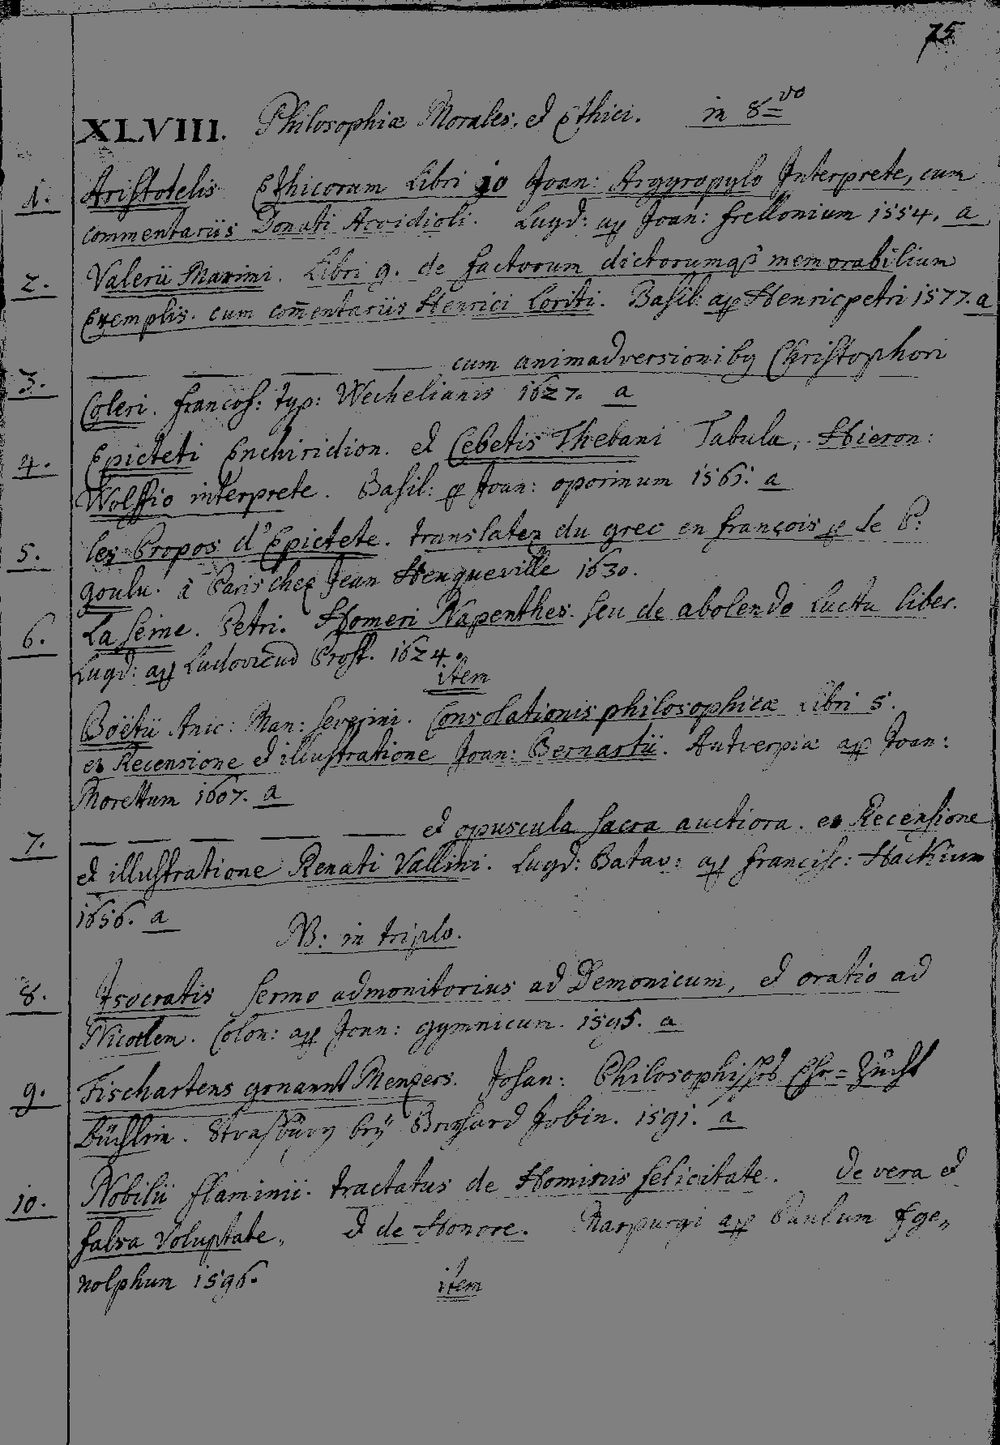 75
XLVIII. Philosophiæ Morales. et Ethici. in 8vo
1. Aristotelis Ethicorum Libri 10 Joan: Argyropylo Interprete, cum
commentariis Donati Acvidioli. Lugd: ap Joan: frellonium 1554. a
2. Valerii Maximi. Libri 9. de factorum dictorumq3 memorabilium
Exemplis. cum com̄entariis Henrici Loriti. Basil: ap Henricpetri 1577. a
3. — — — — cum animadversioniby Christophori
Coleri. francof: typ: Wechelianis 1627. a
4. Epicteti Enchiridion. et Cebetis Thebani Tabula, Hieron:
Wolffio interprete. Basil: p Joan: oporinum 1561: a
5. les Propos d'Epictete. translatez du grec en françois p le P:
goulu. à Paris chez Jean Heuqueville 1630.
6. La Seine. Petri. Homeri Napenthes. seu de abolendo Luctu liber.
Lugd: ap Ludovicum Prost. 1624.
item
Boëtii Anic: Man: Severini. Consolationis philosophicæ Libri 5.
ex Recensione et illustratione Joan: Bernartii. Antverpiæ ap Joan:
Morettum 1607. a
7. — — — — et opuscula sacra auctiora. ex Recensione
et illustratione Renati Vallini. Lugd: Batav: ap francisc: Hackium
1656. a
NB: in triplo.
8. Isocratis Sermo admonitorius ad Demonicum, et oratio ad
Nicoclem. Colon: ap Joan: gymnicum. 1595. a
9. Fischartens genannt Menzers. Johan: Philosophisch Ehe=Zücht
Büchlein. Strasburg bey Bernhard Jobin. 1591. a
10. Nobilii flaminii. tractatus de Hominis felicitate. de vera et
falsa Voluptate. et de Honore. Marpurgi ap Paulum Ege„
nolphum 1596.
item